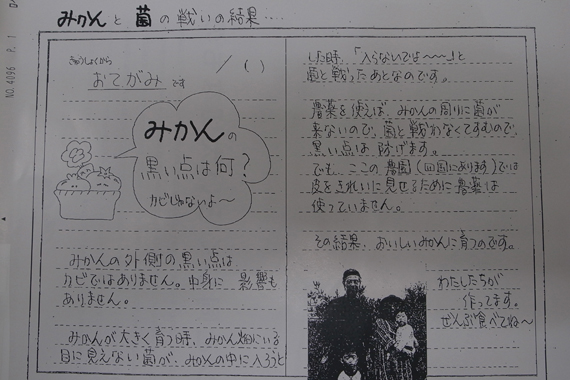 みかんと菌の戦いの結果‥‥
NO. 4096 P. 1
きゅうしょくから
おてがみです
／（ ）
みかんの
黒い点は何？
カビじゃないよ〜
みかんの外側の黒い点は
カビではありません。中身に 影響も
ありません。
みかんが大きく育つ時、みかん畑にいる
目に見えない菌が、みかんの中に入ろうと
した時、「入らないでよ〜〜」と
菌と戦ったあとなのです。
農薬を使えば、みかんの周りに菌が
来ないので、菌と戦わなくてすむので、
黒い点は防げます。
でも、ここの農園（四国にあります）では
皮をきれいに見せるために農薬は
使っていません。
その結果、おいしいみかんに育つのです。
わたしたちが
作ってます。
ぜんぶ食べてね〜